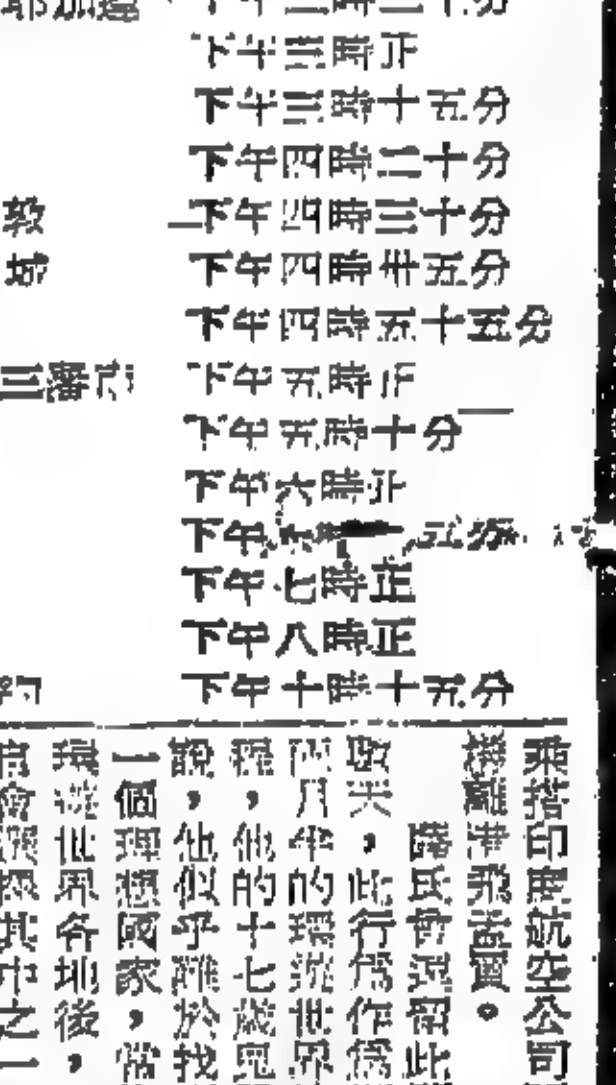 下午三時正
下午三時十五分
下午四時二十分
下午四時三十分
下午四時卅五分
下午四時五十五分
三審 下午五時正
下午五時十分
下午六時正
下午 五分
下午七時正
下午八時正
下午十時十五分
乘搭印度航空公司
機離港飛孟買。
氏曾逗留此
天,此行為作為
兩月半的環遊世界
程,他的十七歲兒
說,他似乎難於找
一個理想國家,常
環遊世界各地後,
會選擇其中之一